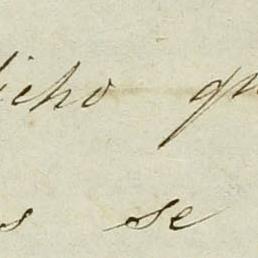 dicho qu
s se